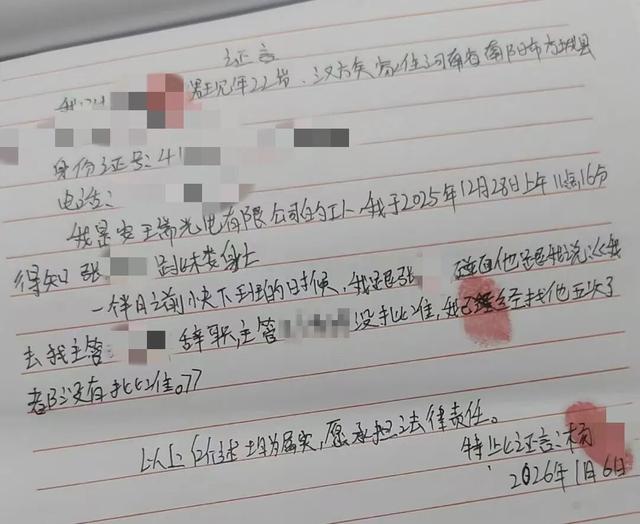 证言
我 男 现年22岁，汉族 住河南省南阳市方城县
身份证号：41
电话：
我是 光电有限公司的工人，我于2025年12月28日上午11点16分
得知张
一件月之前快下班的时候，我跟张 碰面他跟我说《我
去找主管 辞职，主管 没批准，我已经找他五次了
都没有批准。”
以上 述均为属实，愿承担法律责任。
特此证言：杨
2026年1月6日